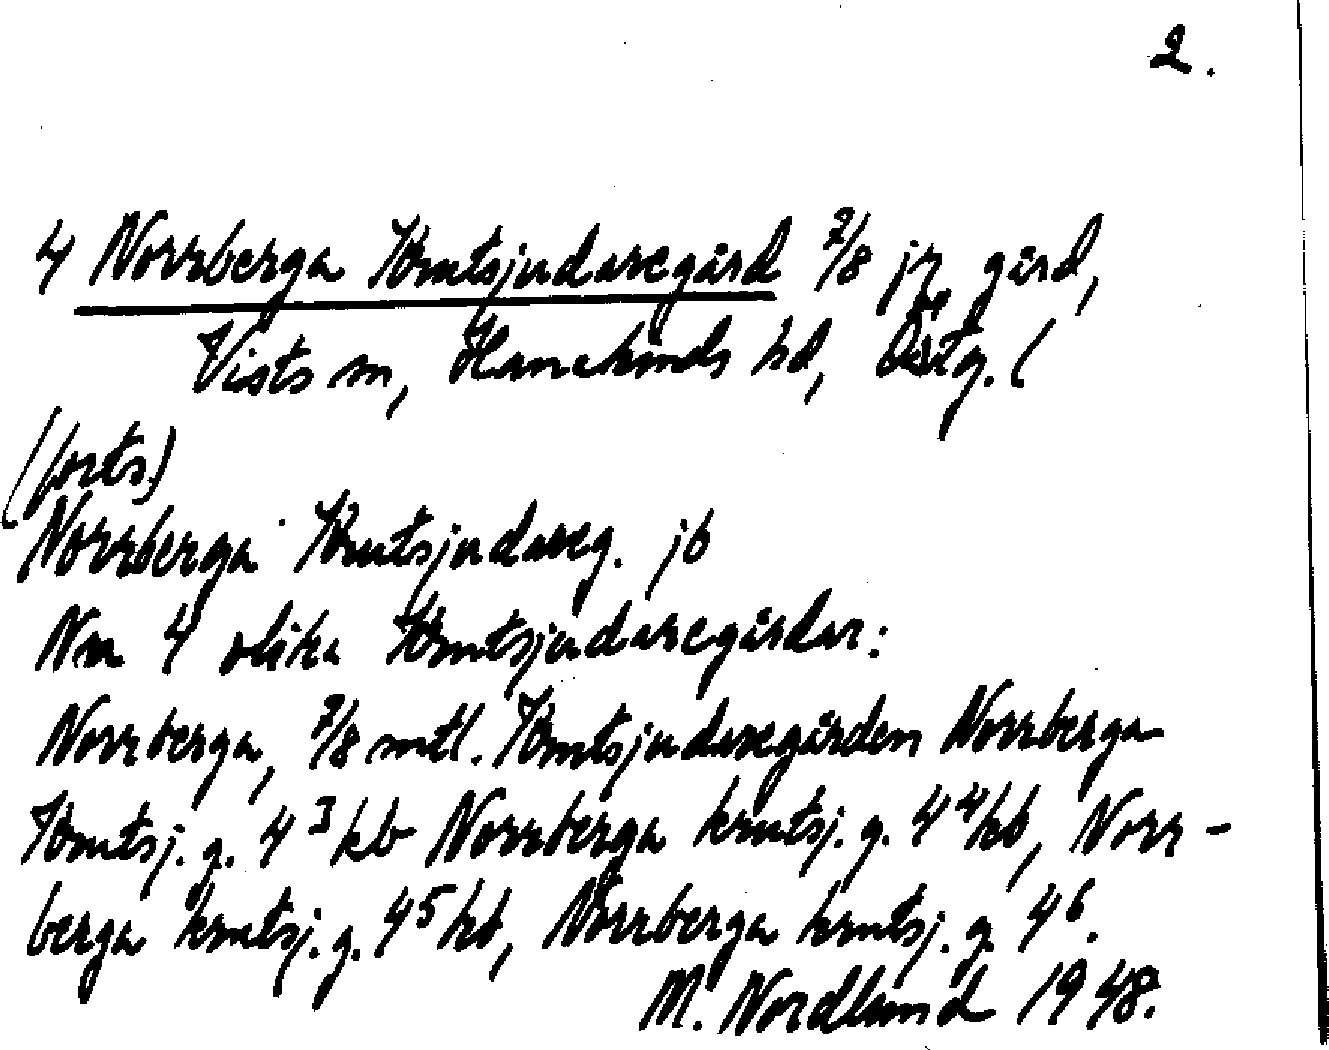 2.
4 Norrberga Krutsjudaregård 7/8 jr gård,
Vists sn, Hanekinds hd, Östg. (
(forts.)
Norrberga Krutsjudareg. jb
Nu 4 olika Krutsjudaregårdar:
Norrberga, 7/8 mtl. Krutsjudaregården Norrberga
Krutsj. g. 4³ kb Norrberga krutsj. g. 4⁴ kb, Norr-
berga krutsj. g. 4⁵ kb, Norrberga krutsj. g. 4⁶.
M. Nordlund 1948.